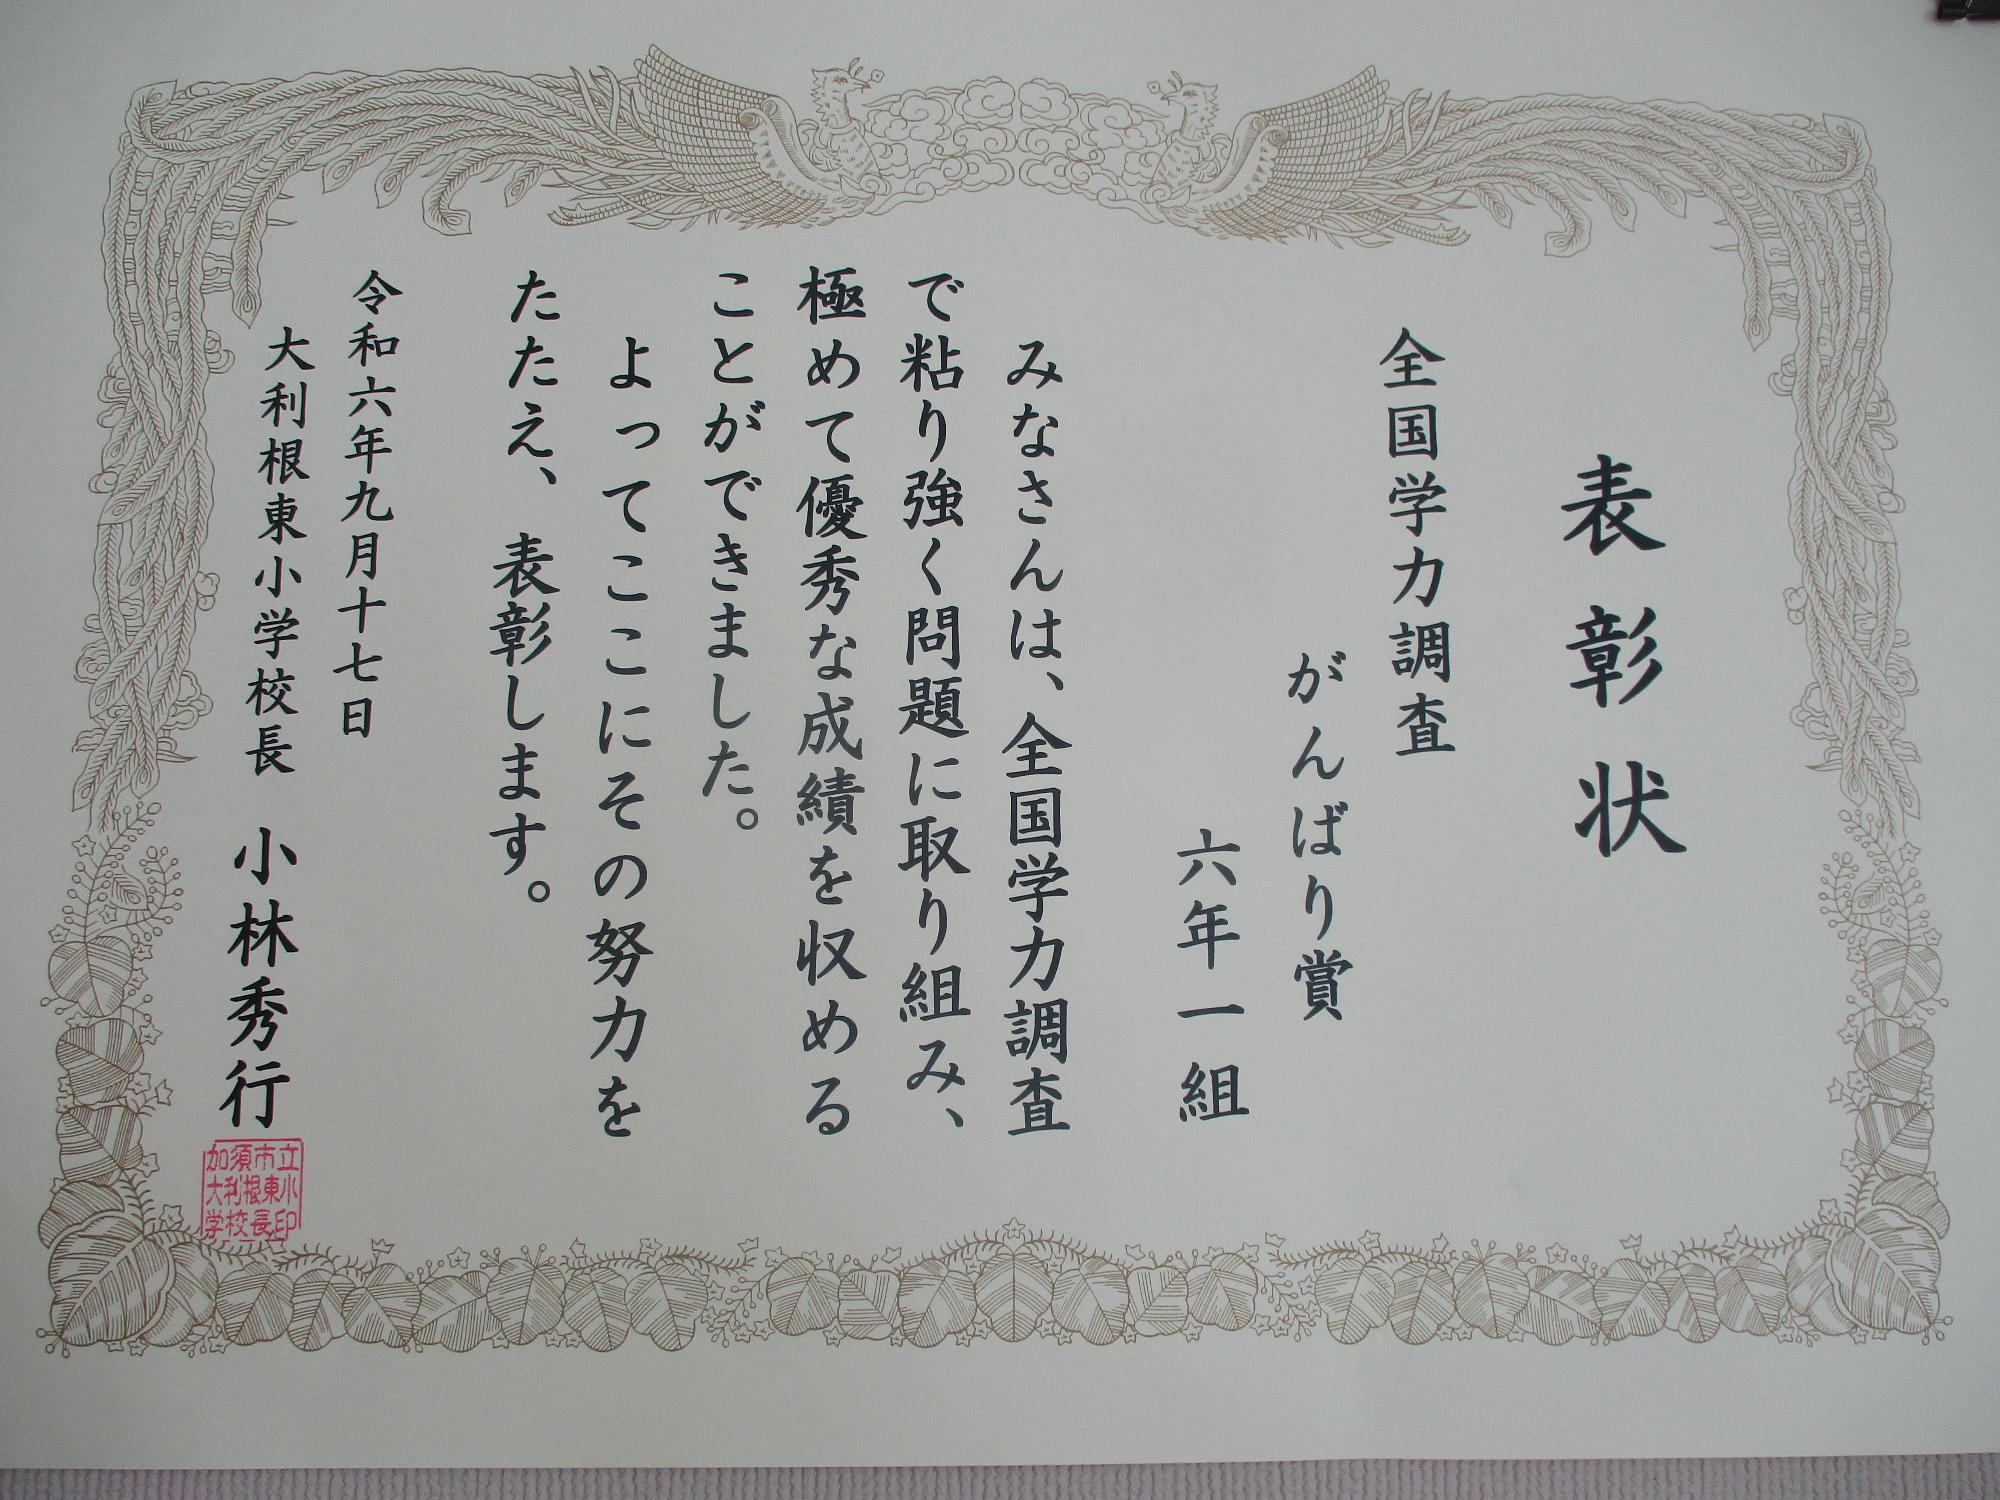 表彰状
全国学力調査
がんばり賞
六年一組
みなさんは、全国学力調査
で粘り強く問題に取り組み、
極めて優秀な成績を収める
ことができました。
よってここにその努力を
たたえ、表彰します。
令和六年九月十七日
大利根東小学校長 小林秀行
加須市立
大利根東小
学校長印